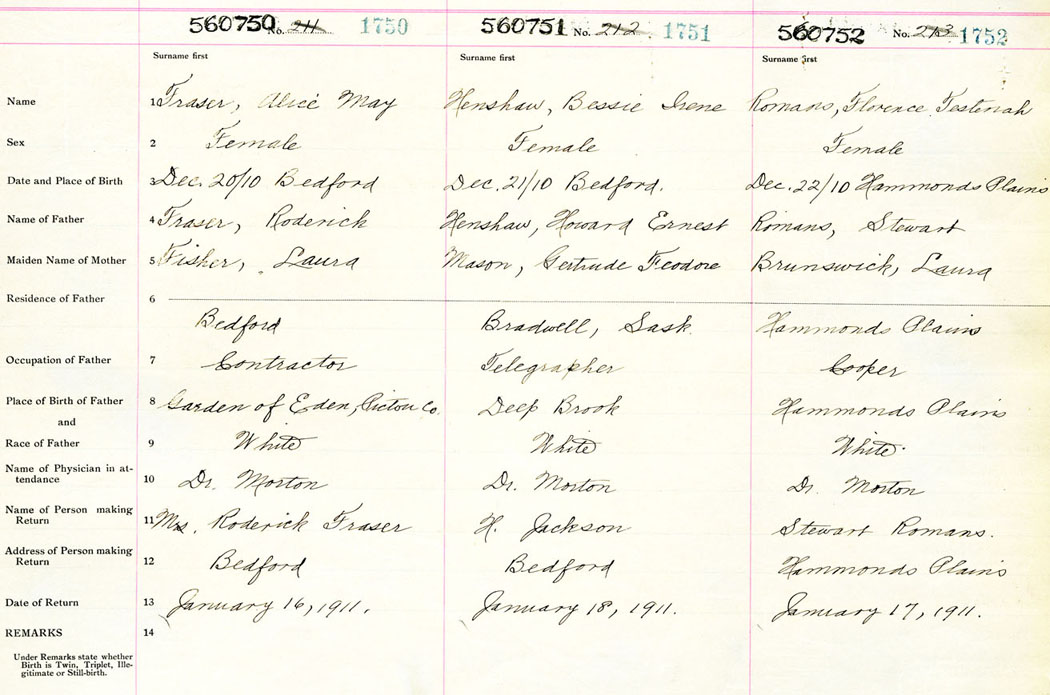 560750 No. 211 1750 560751 No. 212 1751 560752 No. 213 1752
Surname first Surname first Surname first
Name 1 Fraser, Alice May Henshaw, Bessie Irene Romans, Florence Testenah
Sex 2 Female Female Female
Date and Place of Birth 3 Dec. 20/10 Bedford Dec. 21/10 Bedford. Dec. 22/10 Hammonds Plains
Name of Father 4 Fraser, Roderick Henshaw, Howard Ernest Romans, Stewart
Maiden Name of Mother 5 Fisher, Laura Mason, Gertrude Feodore Brunswick, Laura
Residence of Father 6
Bedford Bradwell, Sask. Hammonds Plains
Occupation of Father 7 Contractor Telegrapher Cooper
Place of Birth of Father 8 Garden of Eden, Pictou Co. Deep Brook Hammonds Plains
and
Race of Father 9 White White White.
Name of Physician in at-
tendance 10 Dr. Morton Dr. Morton Dr. Morton
Name of Person making
Return 11 Mrs. Roderick Fraser H. Jackson Stewart Romans.
Address of Person making
Return 12 Bedford Bedford Hammonds Plains
Date of Return 13 January 16, 1911. January 18, 1911. January 17, 1911.
REMARKS 14
Under Remarks state whether
Birth is Twin, Triplet, Ille-
gitimate or Still-birth.